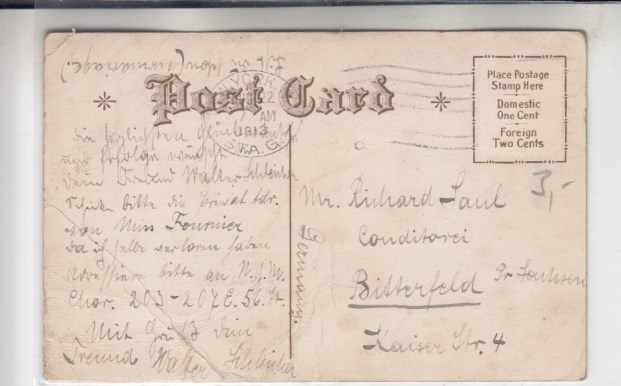 Post Card
YORK
AM
1913
STA. G.
Place Postage
Stamp Here
Domestic
One Cent
Foreign
Two Cents
3,-
die herzlichsten Glückwünsche
und Erfolge wünscht
dein Freund Walter Schleicher
Schicke bitte die privat Adr.
von Miss Fournier
da ich selbe verloren haben
Adressiere bitte an N.Y.
Chor. 203-207 E. 56. St.
Mit Gruß dein
Freund Walter Schleicher
Mr. Richard Saul
Conditorei
Bitterfeld Pr Sachsen
Kaiser Str. 4
Germany.